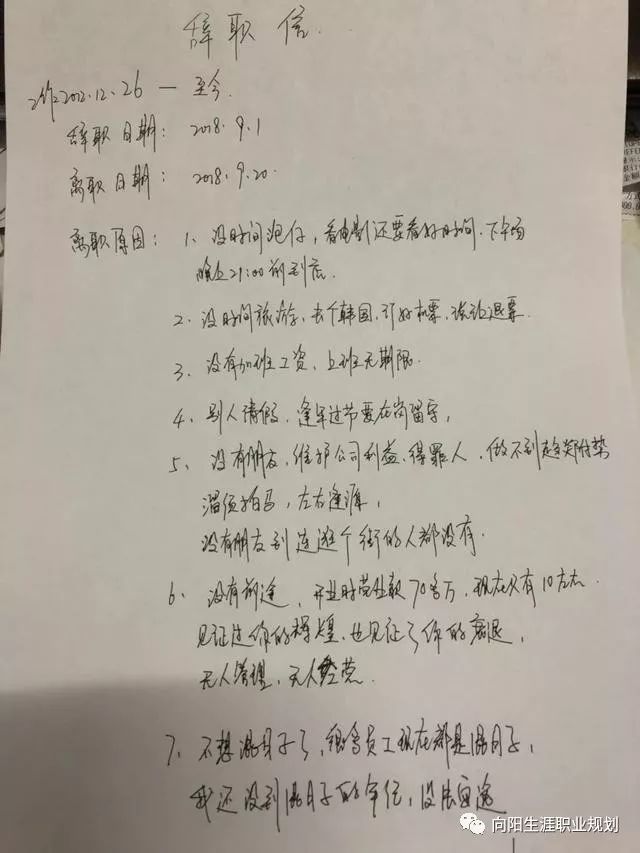 辞职信.
工作2012.12.26 — 至今.
辞职日期: 2018.9.1
离职日期: 2018.9.20.
离职原因: 1、没时间泡仔,看电影还要看好时间.下午场
晚上21:00前到店.
2、没时间旅游,去个韩国,订好机票,说让退票.
3、没有加班工资,上班无期限.
4、别人请假,逢年过节要在岗留守,
5、没有朋友,维护公司利益.得罪人,做不到趋炎附势
溜须拍马,左右逢源,
没有朋友到连逛个街的人都没有.
6、没有前途,开业时营业款70多万,现在只有10左右.
见证过你的辉煌,也见证了你的衰退,
无人管理,无人经营.
7、不想混日子了,很多员工现在都是混日子,
我还没到混日子的年纪,没法交
向阳生涯职业规划